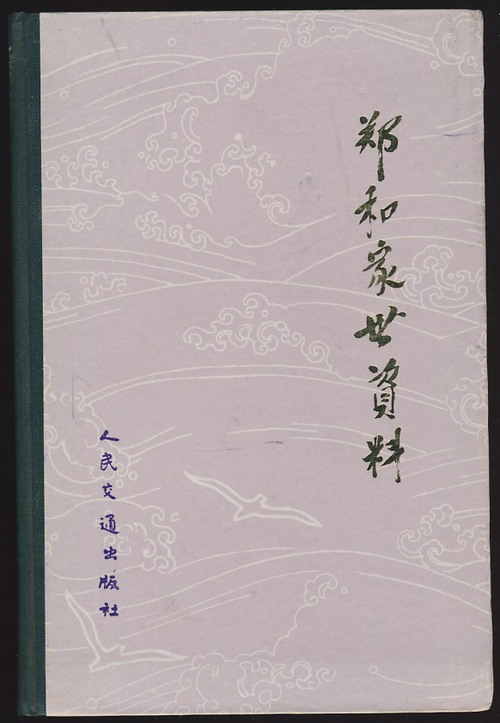 郑和家世資料
人民交通出版社